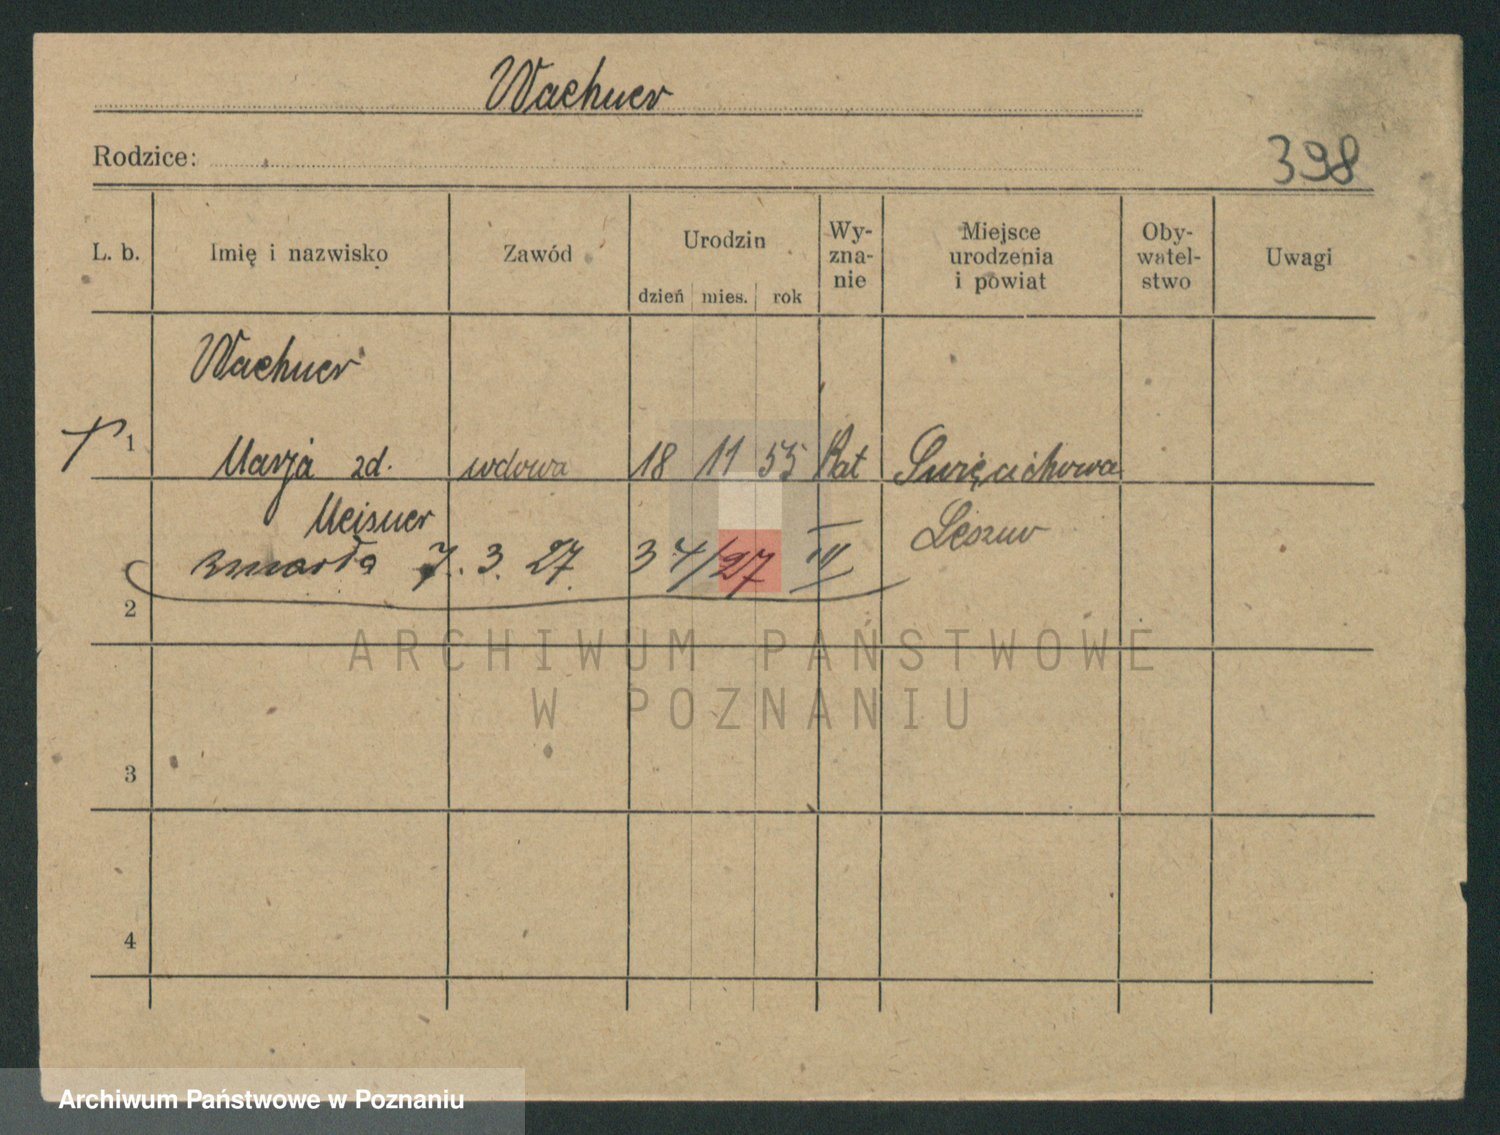 Wachner
Rodzice:
398
L. b. Imię i nazwisko Zawód Urodzin dzień mies. rok Wy-zna-nie Miejsce urodzenia i powiat Oby-watel-stwo Uwagi
Wachner
1 Marja zd. wdowa 18 11 55 Kat Święcichowa
Meisner Leszno
zmarła 7. 3. 27 34/27 III
2
ARCHIWUM PAŃSTWOWE
W POZNANIU
3
4
Archiwum Państwowe w Poznaniu